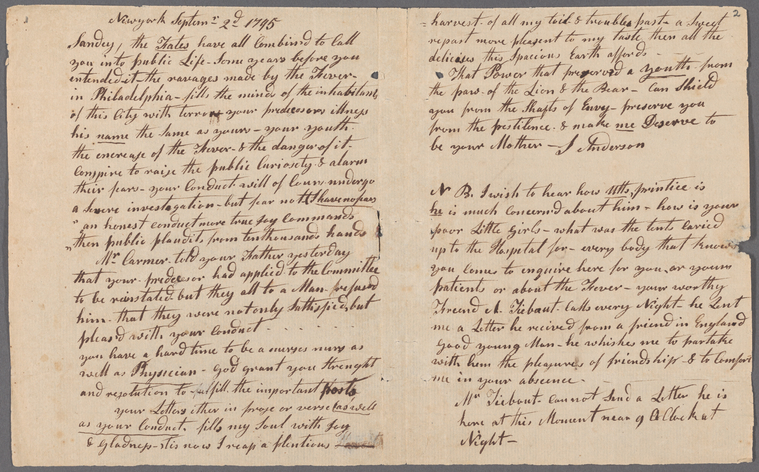 Newyork Septem.r 2.d 1795
Sandy, the Fates have all Combined to Call
you into public Life Some years before you
intended it the ravages made by the Fever
in Philadelphia fills the minds of the inhabitants
of this City with terror your predecesors illness
his name the Same as yours – your youth
the encrease of the Fever & the danger of it
Conspire to raise the public Curiosity & alarm
their fears – your Conduct will of Cours undergo
a Severe investagation – but fear not I have no fears
"an honest conduct more true Joy Commands
"then public plaudits from ten thousands hands
Mr. Carmer told your Father yesterday
that your predecesor had applied to the Committee
to be reinstated but they all to a Man refused
him that they were not only Satisfied, but
pleas'd with your Conduct
you have a hard time to be a nurses nurs as
well as Physician – God grant you Strenght
and resolution to fill the important posts
your Letters ither in prose or verse as well
as your Conduct fills my Soul with Joy
& Gladness – tis now I reap a plentious
2
harvest of all my toil & troubles past – a Sweet
repast more pleasent to my taste then all the
delicies this Spacious Earth affords
That Power that preserv'd a youth from
the paw of the Lion & the Bear – Can Shield
you from the Shafts of Envy – preserve you
from the pestilence & make me Deserve to
be your Mother – S Anderson
N B. I wish to hear how Mr. printice is
he is much Concern'd about him – how is your
poor Little Girls – what was the tents Caried
up to the Hospital for – every body that knows
you Comes to inquire here for you, or your
patients or about the Fever – your worthy
Freind A. Tiebaut Calls every Night – he Lent
me a Letter he recived from a friend in England
Good young Man – he whishes me to partake
with him the pleasures of friendship & to Comfort
me in your absence
Mr Tiebout Cannot Send a Letter he is
here at this Moment near 9 O Clock at
Night –